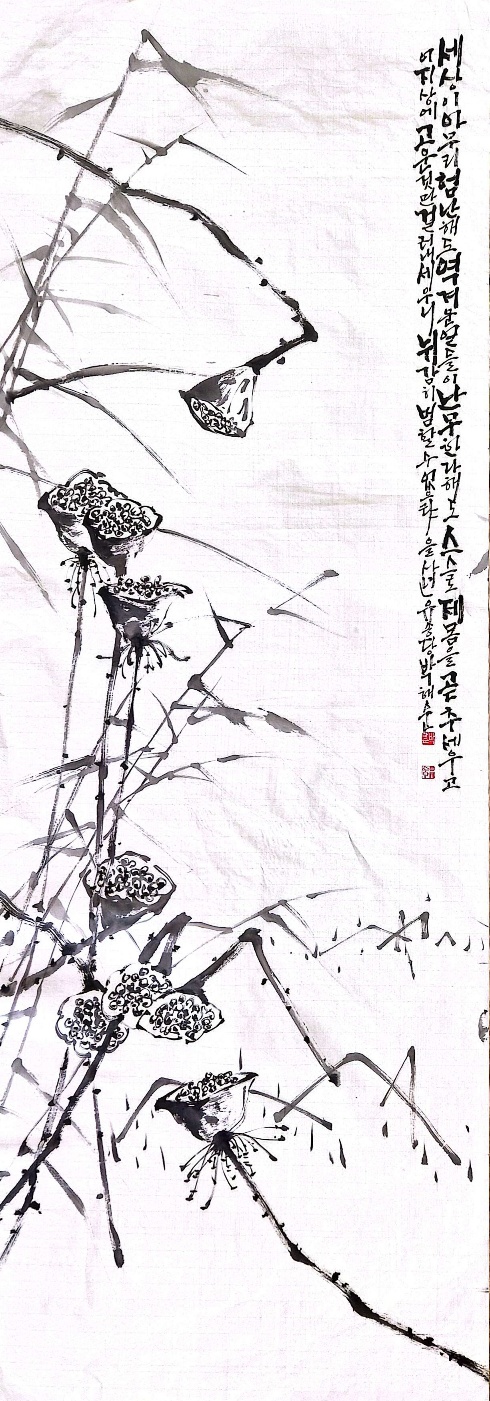 세상이 아무리 험난해도 역겨운 일들이 난무한다 해도 스스로 제 몸을 곧추세우고
어지상에 고운 것만 걸러내 세우니 뉘 감히 범할 수 있을까 을사년 유흥당 박해순